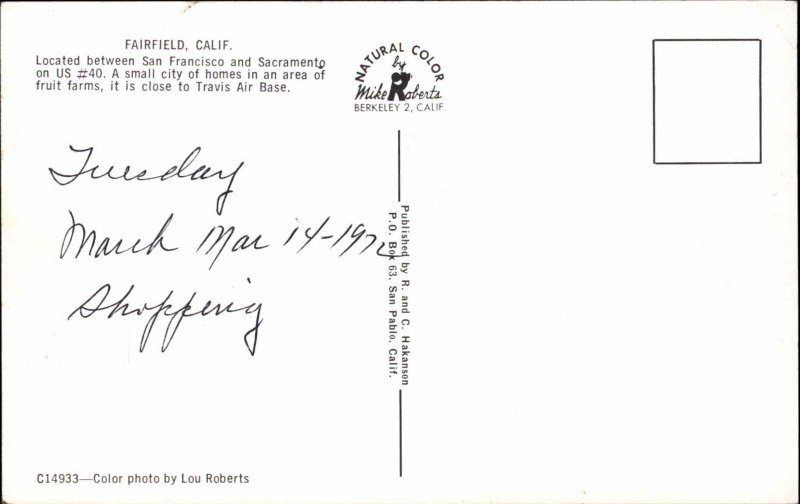 FAIRFIELD, CALIF.
Located between San Francisco and Sacramento
on US #40. A small city of homes in an area of
fruit farms, it is close to Travis Air Base.
NATURAL COLOR
by
Mike Roberts
BERKELEY 2, CALIF.
Tuesday
March Mar 14-1972
Shopping
Published by R. and C. Hakanson
P.O. Box 63, San Pablo, Calif.
C14933—Color photo by Lou Roberts